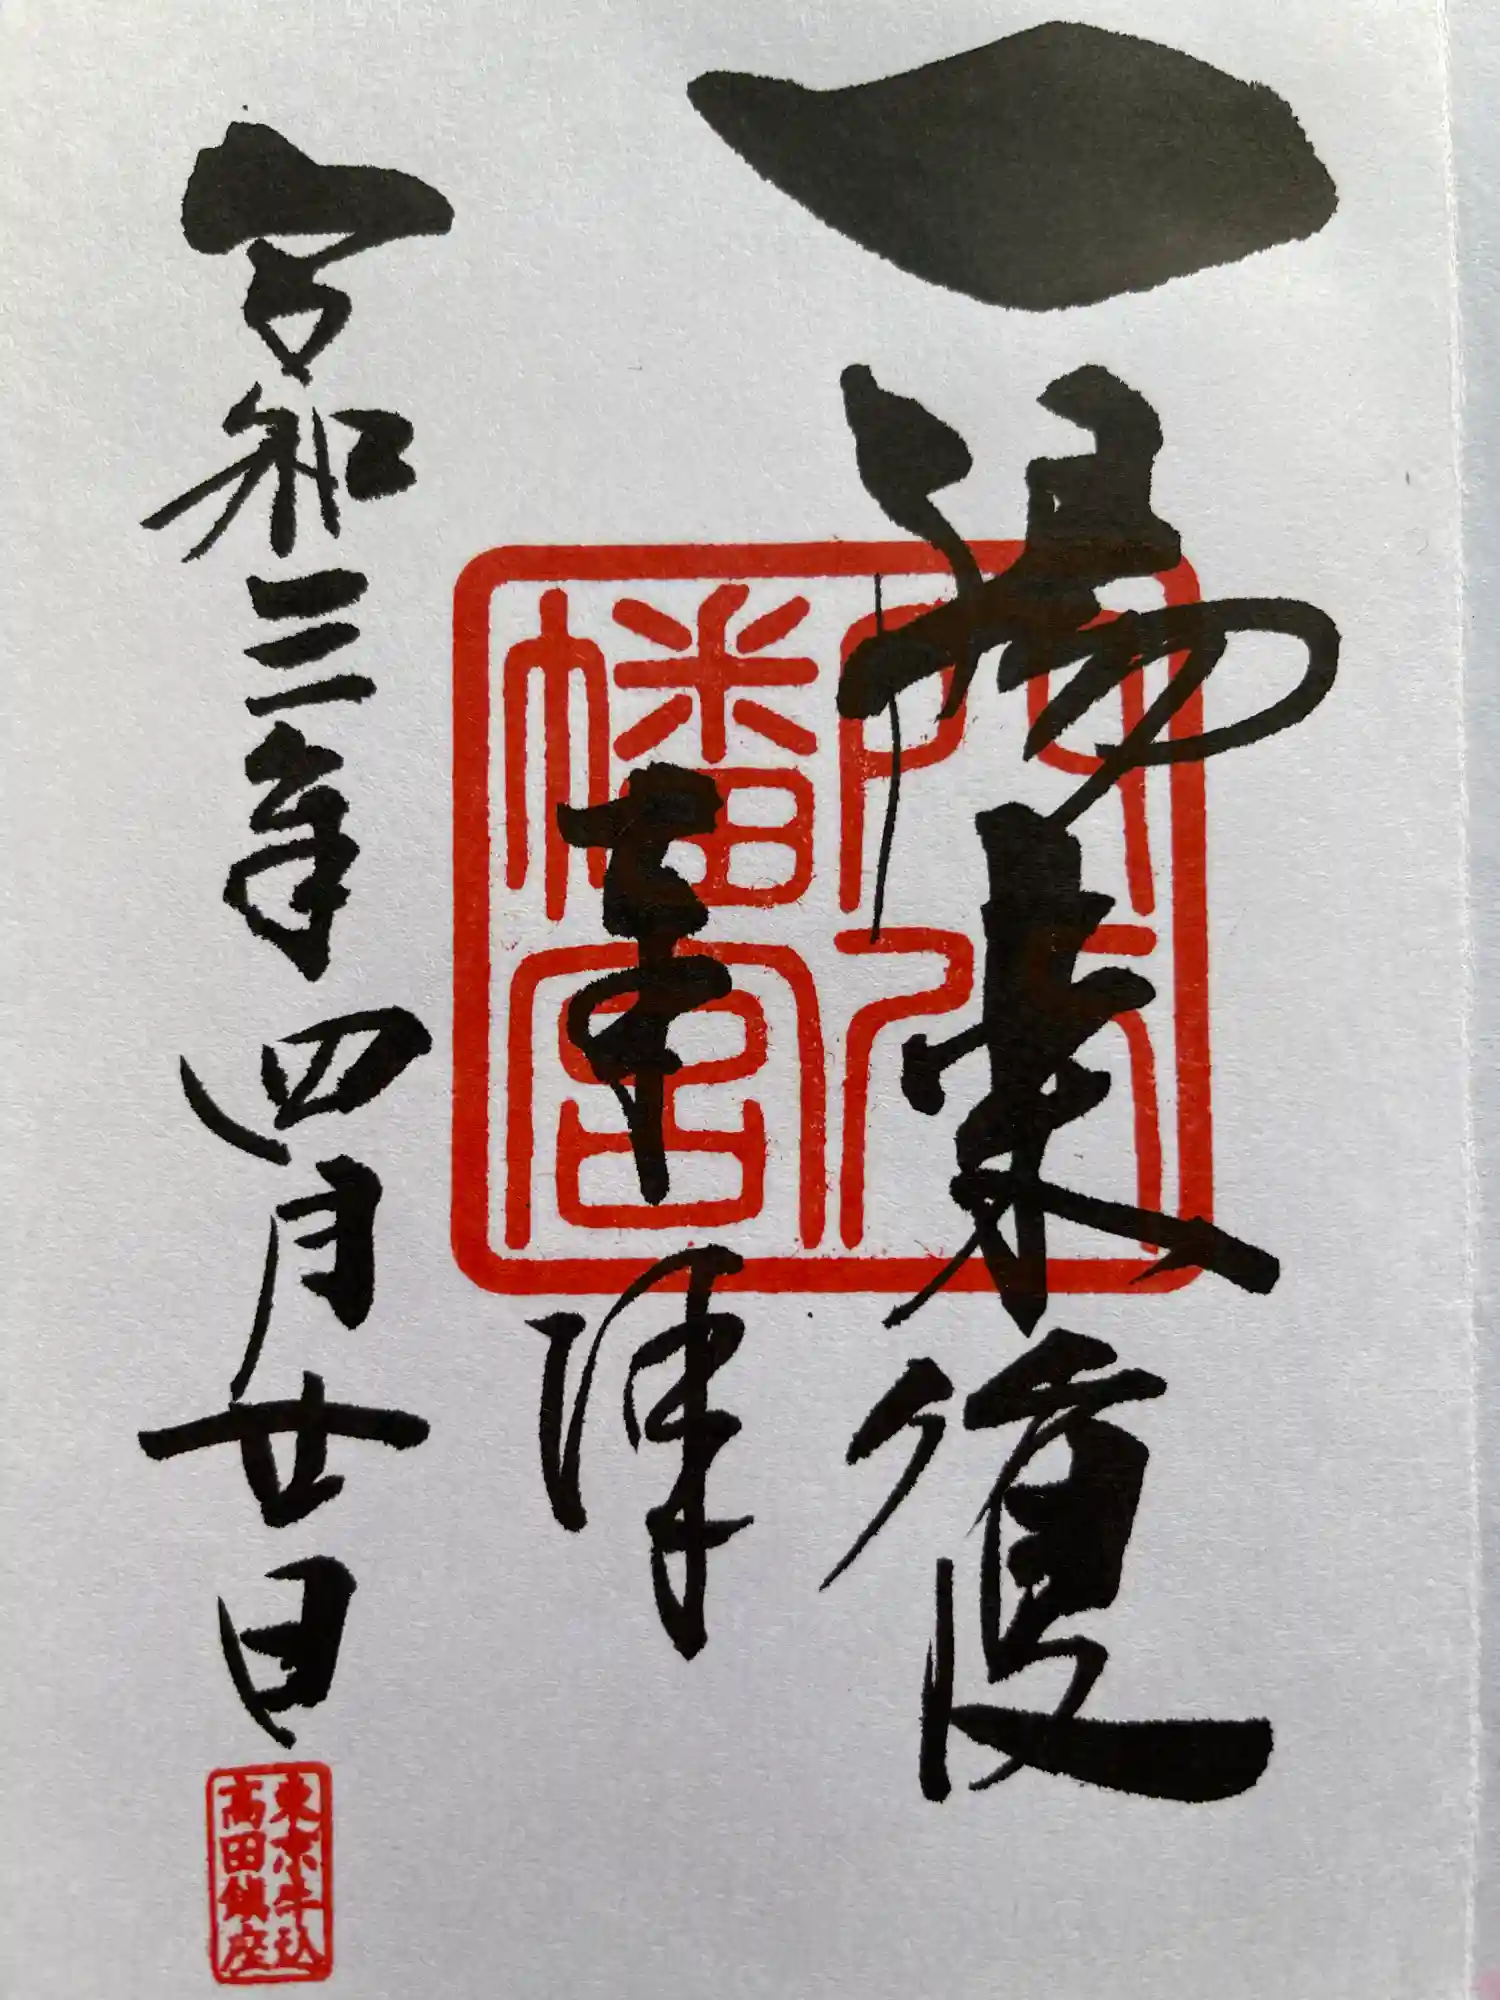 一陽来復
奉拝
穴八
幡宮
令和三年四月廿日
東京牛込
高田鎮座